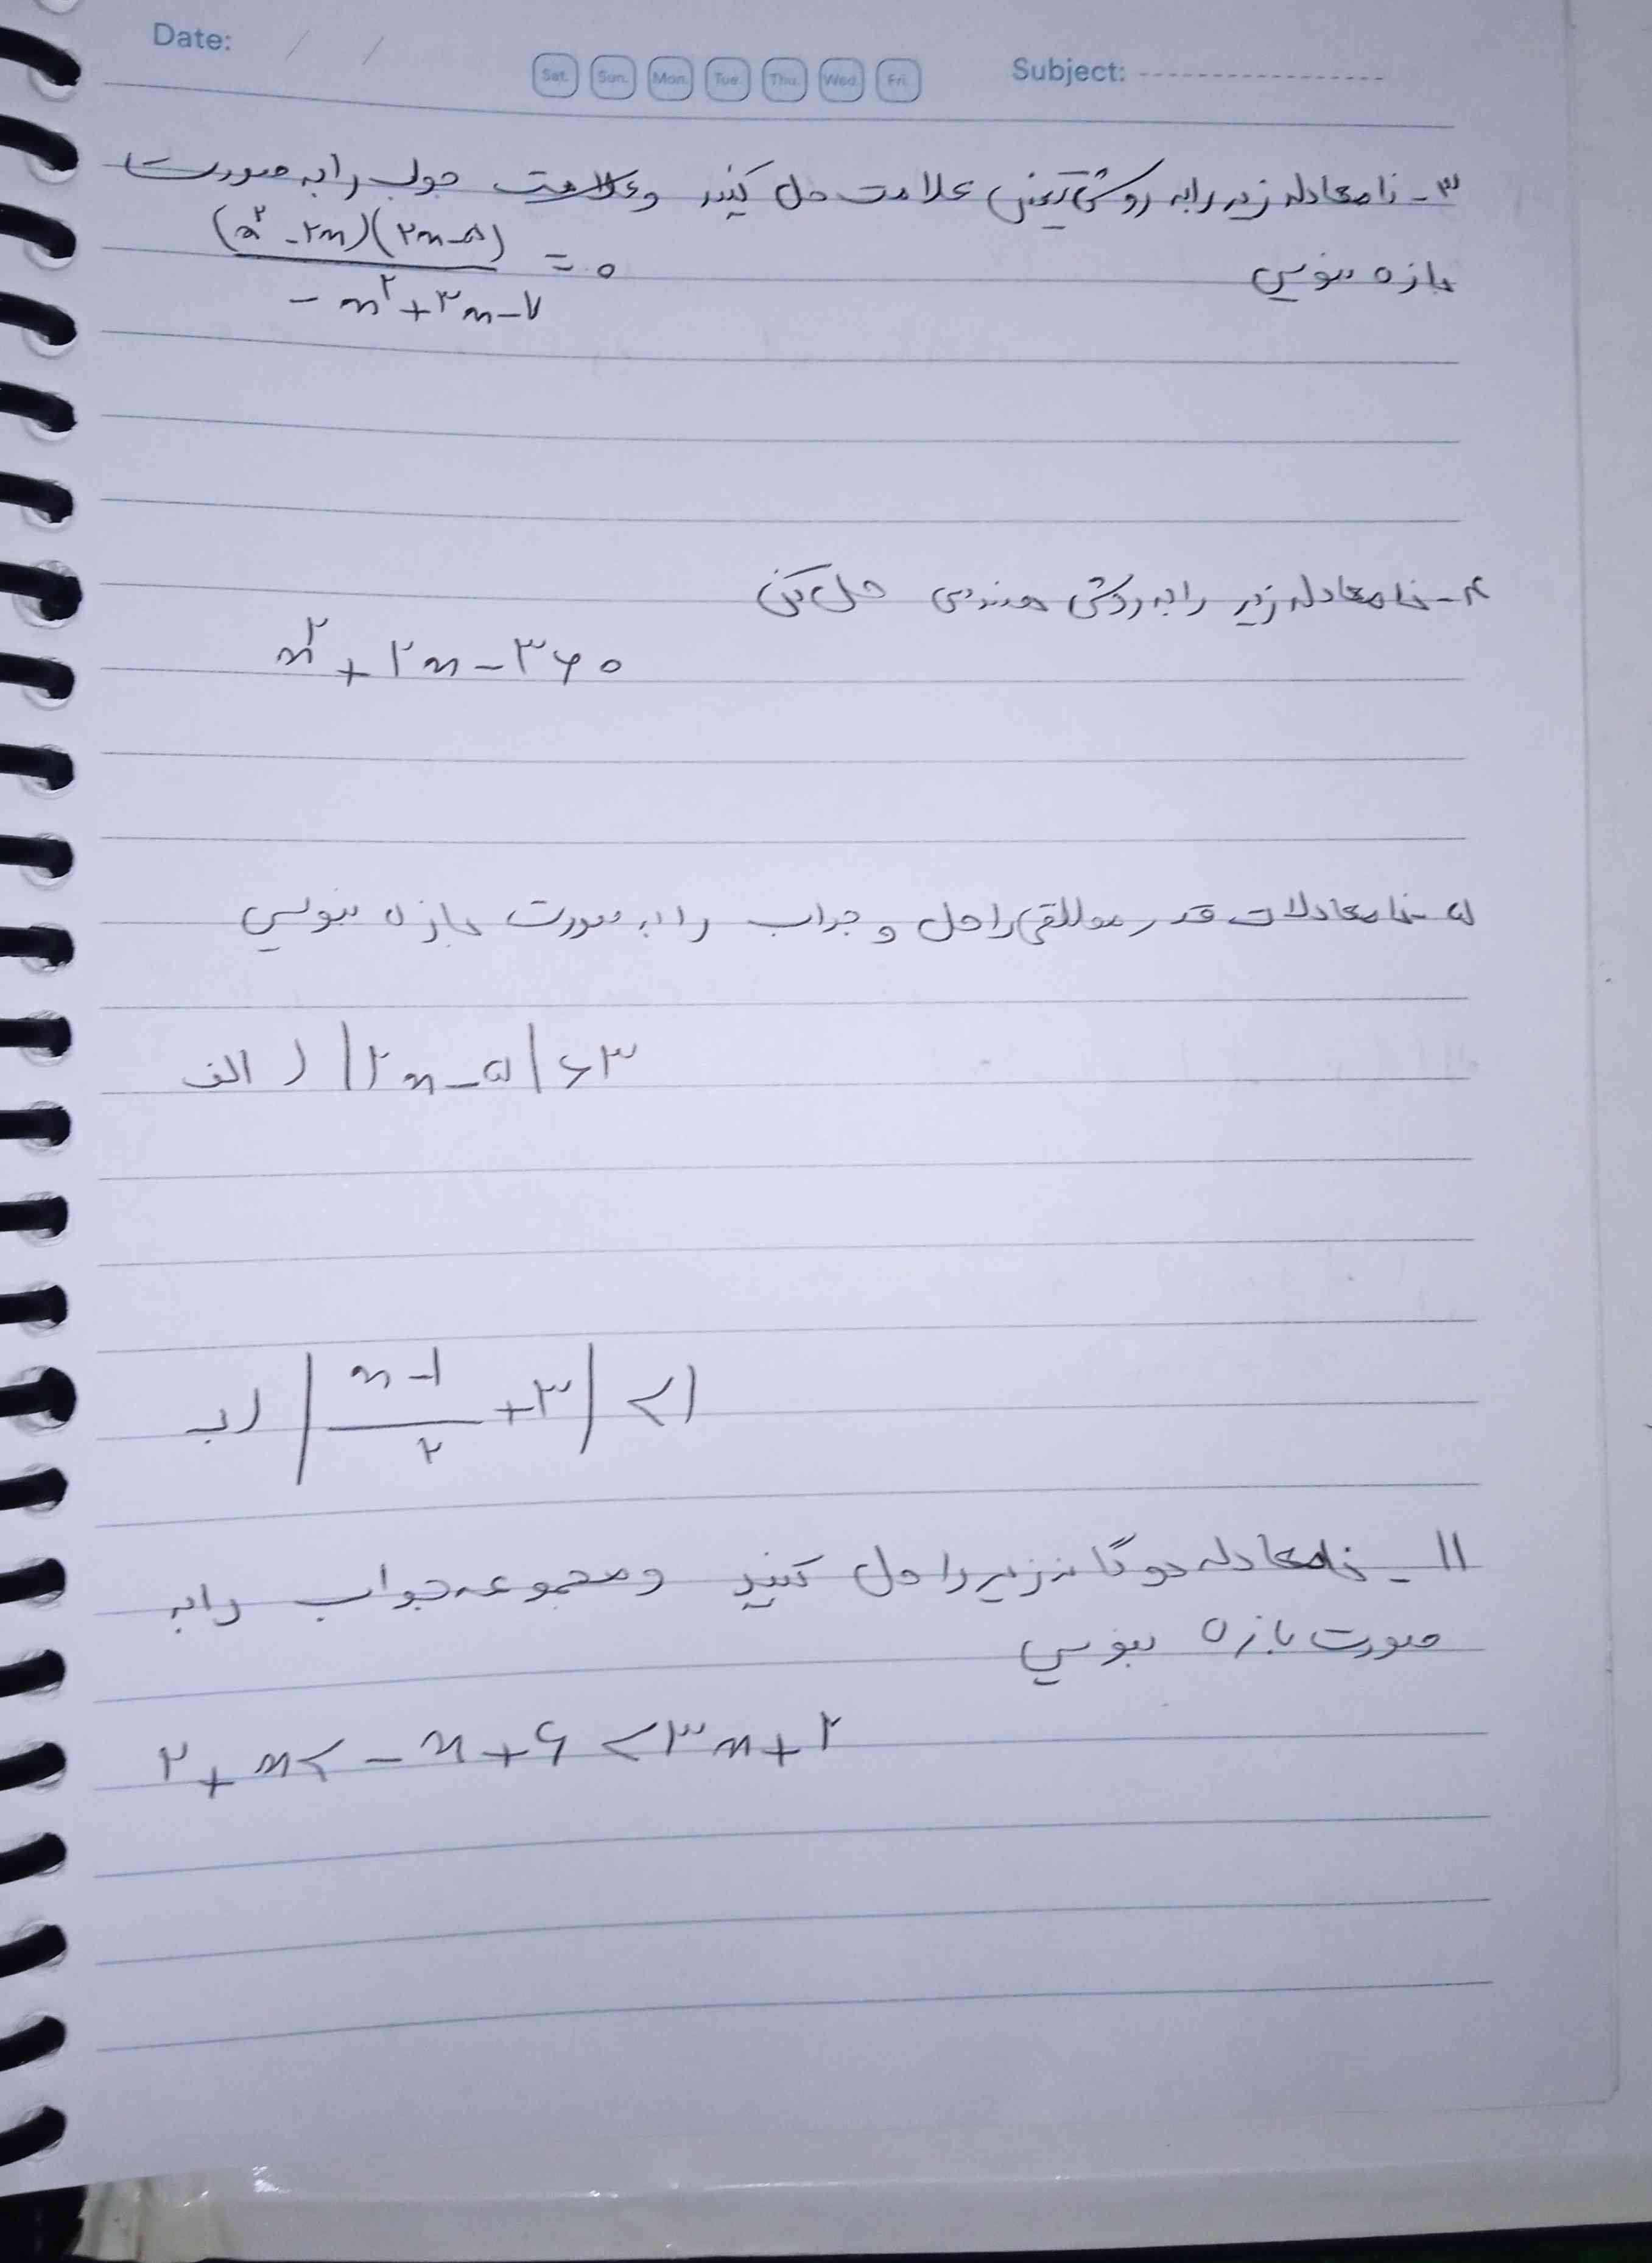 Date: / /
Sat. Sun. Mon. Tue. Thu. Wed. Fri.
Subject:
۳- نامعادله زیر را به روش تعیین علامت حل کنید و جواب را به صورت
بازه بنویس
(x² - ۲x)(۲x - ۵) / -x² + ۳x - ۷ = ۰
۴- نامعادله زیر را به روش هندسی حل کن
x² + ۲x - ۳ ≥ ۰
۵- نامعادلات قدر مطلقی را حل و جواب را به صورت بازه بنویس
الف) |۲x - ۵| ≤ ۳
ب) |x-۱ / ۲ + ۳| > ۱
۱۱- نامعادله دوگانه زیر را حل کنید و مجموعه جواب را به
صورت بازه بنویس
۲ + x < -x + ۶ < ۳x + ۲